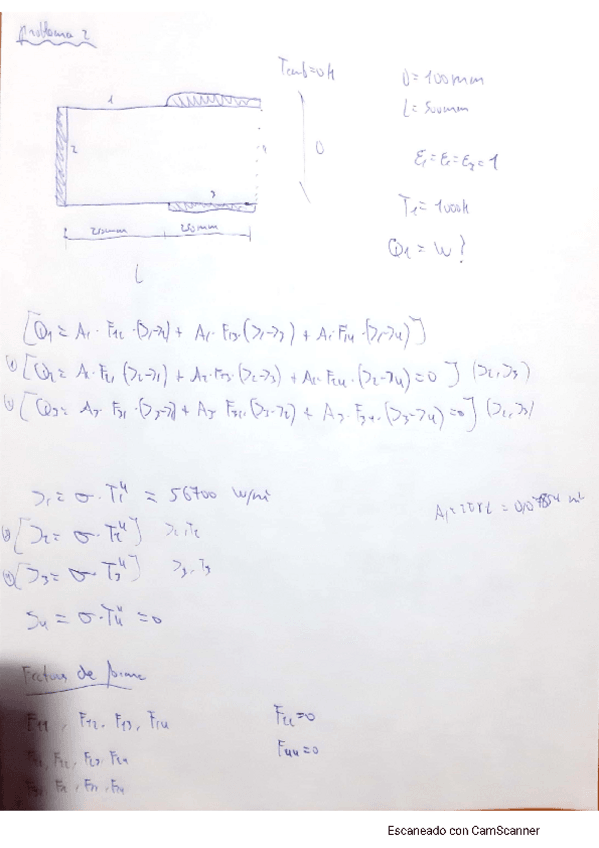 Problema 2
Tamb = 0K
D = 100mm
L = 500mm
1
2
4
D
ε1 = ε2 = ε3 = 1
3
T1 = 1000K
250mm 250mm
Q1 = W ?
L
[Q1 = A1· F12 ·(J1-J2) + A1· F13·(J1-J3) + A1· F14 ·(J1-J4)]
[Q2 = A2· F21 (J2-J1) + A2· F23·(J2-J3) + A2· F24·(J2-J4) = 0 ] (J2, J3)
[Q3 = A3· F31·(J3-J1) + A3· F32·(J3-J2) + A3· F34·(J3-J4) = 0] (J2, J3)
J1 = σ·T1⁴ = 56700 W/m²
[J2 = σ·T2⁴] J2, T2
[J3 = σ·T3⁴] J3, T3
J4 = σ·T4⁴ = 0
Factores de forma
F11, F12, F13, F14
F22=0
F21, F22, F23, F24
F44=0
Escaneado con CamScanner